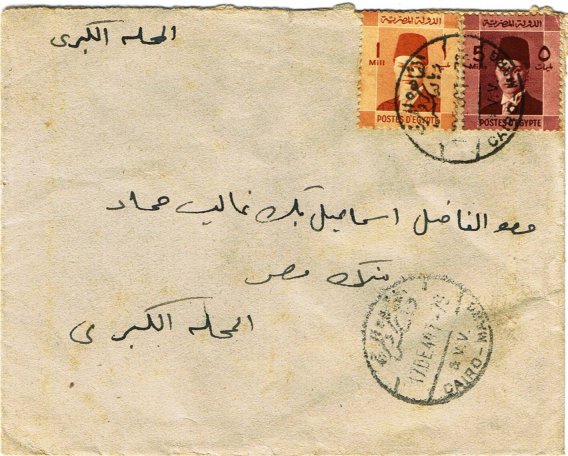 المحله الكبرى
الدولة المصرية
١
1
Mill
POSTES D'EGYPTE
الدولة المصرية
5
٥
Mills
مليمات
POSTES D'EGYPTE
CAIRO
الفاضل اسماعيل بك غالب حماد
بنك مصر
المحله الكبرى
17 DE 40
& V.V.
CAIRO-MANS